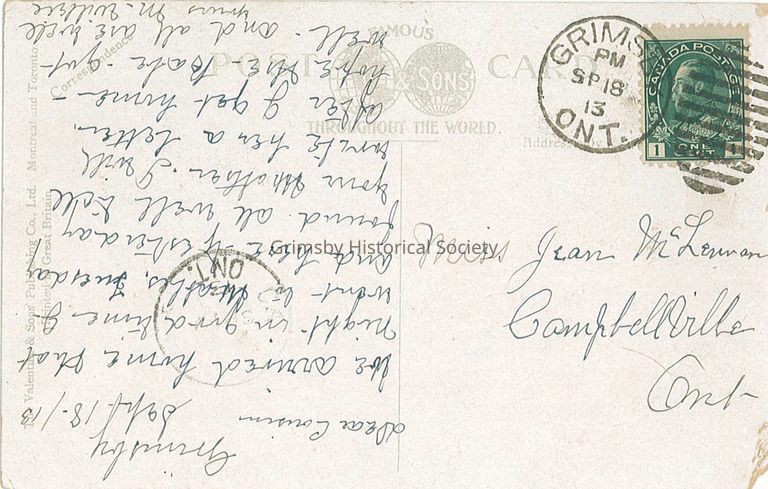 Grimsby
Sept 18/13
Dear Cousin
We arrived home that
night in good time &
went to Mables, Tuesda
and got Yesterday
found all well tell
your Mother I will
write her a letter.
after I get home -
hope the Babe got
well. and all are well
yours M.
FAMOUS
POST CARD
& SONS
THROUGHOUT THE WORLD.
Correspondence
Address
Valentine & Sons Publishing Co., Ltd. Montreal and Toronto
Printed in Great Britain
GRIMSBY
PM
SP 18
13
ONT.
CANADA POSTAGE
1 ONE CENT 1
ONT.
Miss Jean McLennan
Campbellville
Ont
Grimsby Historical Society